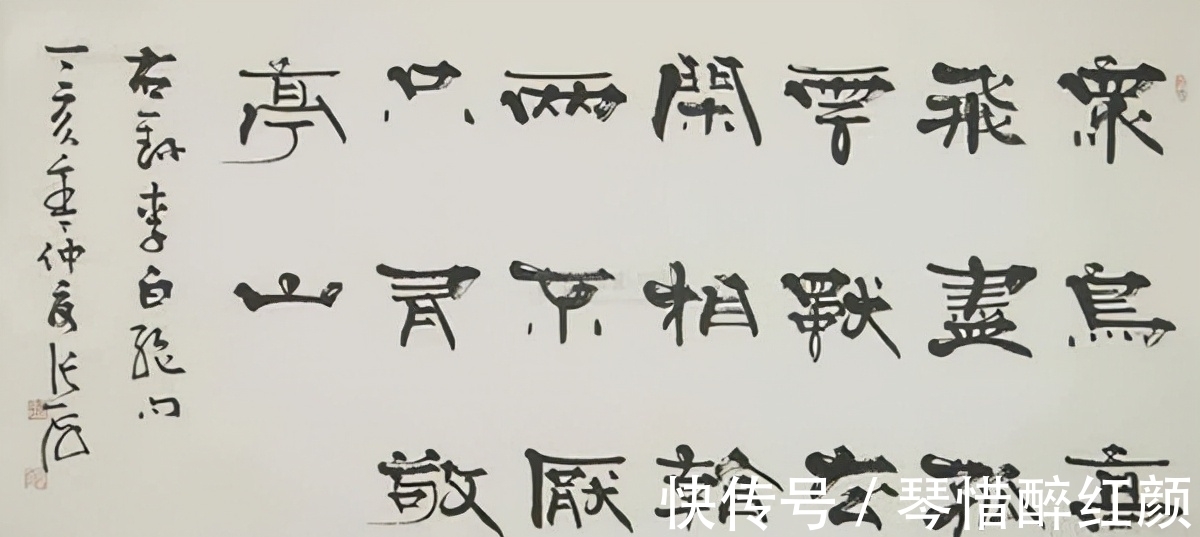 眾鳥高
飛盡孤
雲獨去
閑相看
兩不厭
只有敬
亭山
右錄李白絕句
亥年仲夏張
快传号 / 琴惜醉红颜